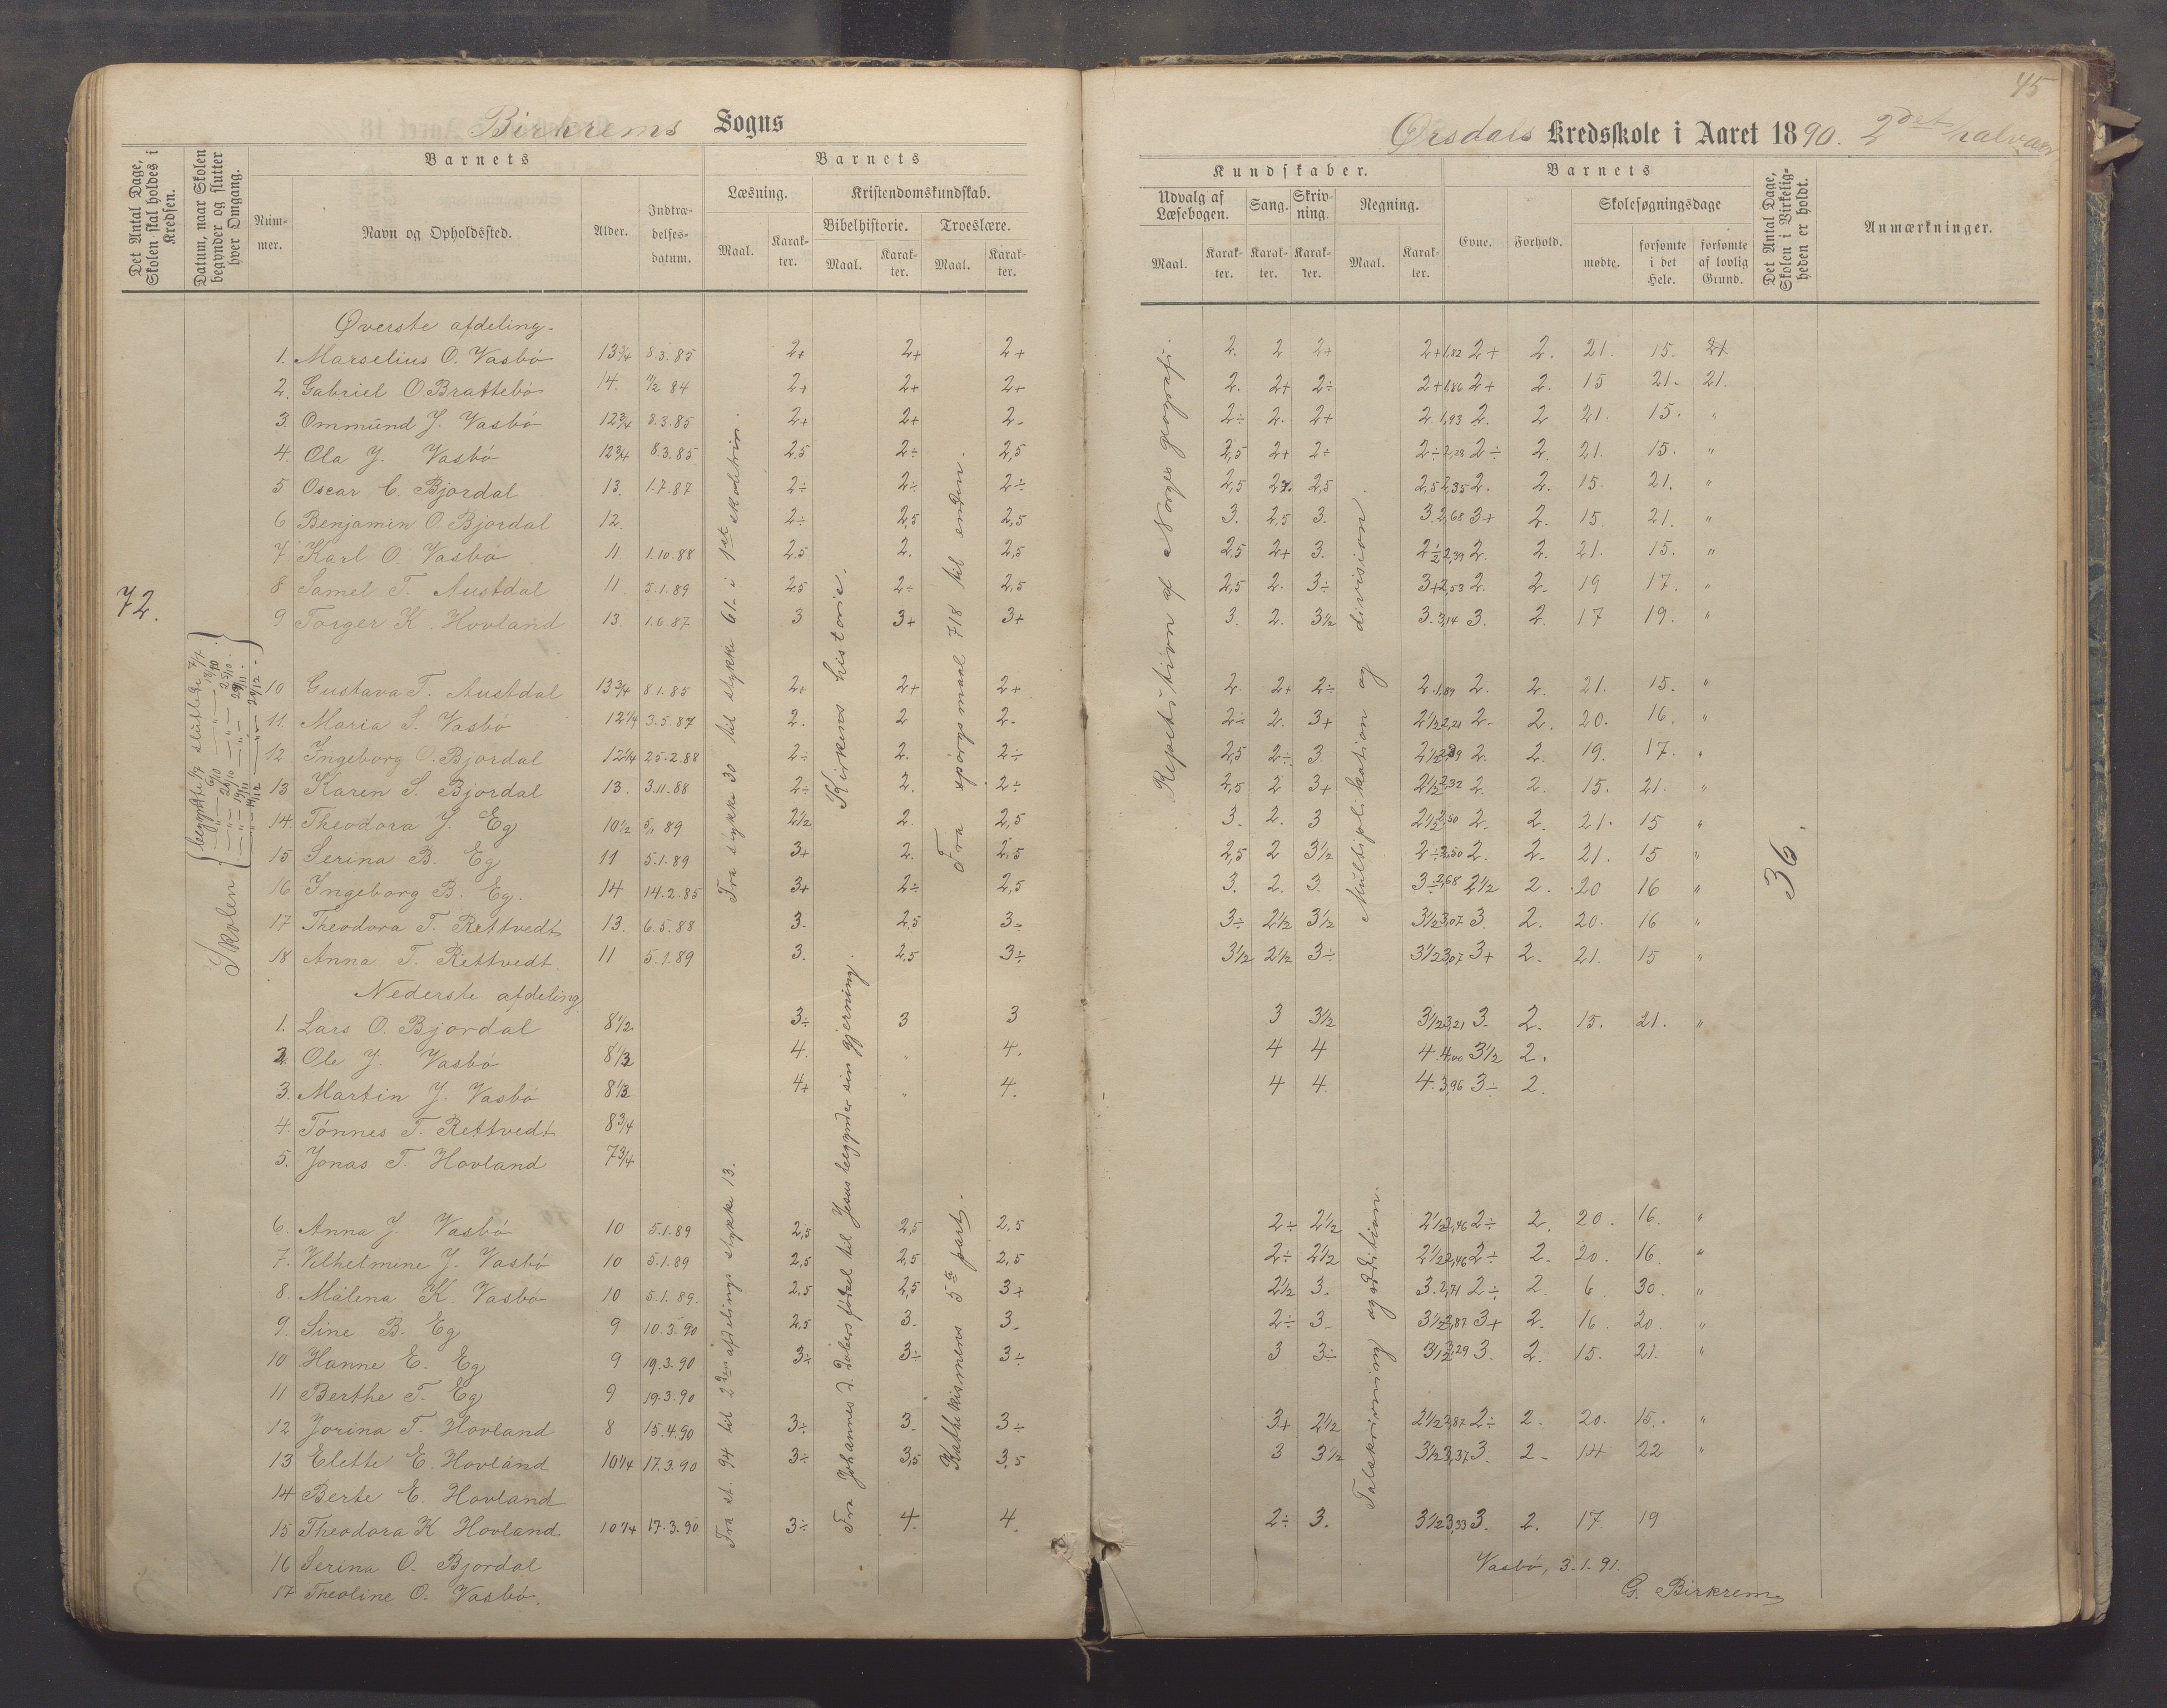 45
Birkrems Sogns
Ørsdals Kredsskole i Aaret 1890. 2det halvaar
Det Antal Dage, Skolen skal holdes i Kredsen.
Datum, naar Skolen begynder og slutter hver Omgang.
Barnets
Nummer.
Navn og Opholdssted.
Alder.
Indtrædelsesdatum.
Barnets
Læsning.
Maal.
Karakter.
Kristendomskundskab.
Bibelhistorie.
Maal.
Karakter.
Troeslære.
Maal.
Karakter.
Kundskaber.
Udvalg af Læsebogen.
Maal.
Karakter.
Sang.
Karakter.
Skrivning.
Karakter.
Regning.
Maal.
Karakter.
Barnets
Evne.
Forhold.
Skolesøgningsdage
mødte.
forsømte i det Hele.
forsømte af lovlig Grund.
Det Antal Dage, Skolen i Virkeligheden er holdt.
Anmærkninger.
72.
Skolen
begyndte
sluttede
Øverste afdeling.
1. Marselius O. Vasbö 13 3/4 8.3.85 2+ 2+ 2+ 2. 2 2+ 2+ 1,82 2+ 2. 21. 15. 21
2. Gabriel O Brattebö 14. 11/2 84 2+ 2+ 2+ 2. 2+ 2÷ 2+ 1,86 2+ 2. 15 21. 21.
3. Ommund J. Vasbö 12 3/4 8.3.85 2+ 2+ 2- 2÷ 2. 2+ 2 1,93 2. 2 21. 15. "
4. Ola J. Vasbö 12 3/4 8.3.85 2.5 2÷ 2,5 2,5 2+ 2÷ 2÷ 2,28 2÷ 2. 21. 15. "
5 Oscar C. Bjordal 13. 1.7.87 2÷ 2÷ 2÷ 2,5 2 2,5 2,5 2,35 2. 2. 15. 21. "
6 Benjamin O. Bjordal 12. 2÷ 2,5 2,5 3. 2,5 3. 3. 2,68 3+ 2. 15. 21. "
7. Karl O. Vasbö 11 1.10.88 2,5 2. 2,5 2,5 2+ 3. 2 1/2 2,39 2. 2. 21. 15. "
8 Samel T. Austdal 11. 5.1.89 2,5 2÷ 2,5 2,5 2. 3÷ 3+ 2,53 2. 2- 19 17. "
9 Torger K. Hovland 13. 1.6.87 3 3+ 3+ 3. 2. 3 1/2 3. 3,14 3. 2. 17 19. "
10 Gustava T. Austdal 13 3/4 8.1.85 2+ 2+ 2+ 2. 2+ 2÷ 2. 1,89 2. 2. 21. 15. "
11. Maria S. Vasbö 12 1/4 3.5.87 2. 2 2- 2÷ 2. 3+ 2 1/2 2,21 2- 2. 20. 16. "
12 Ingeborg O. Bjordal 12 1/4 25.2.88 2÷ 2. 2÷ 2,5 2÷ 3. 2 1/2 2. 2. 19. 17. "
13 Karen S. Bjordal 13. 3.11.88 2÷ 2. 2÷ 2,5 2 3+ 2 1/2 2,32 2. 2. 15. 21. "
14. Theodora J. Eg 10 1/2 5/1 89 2 1/2 2. 2,5 3. 2. 3 2 1/2 2,50 2. 2. 21. 15 "
15 Serina B. Eg 11 5.1.89 3+ 2. 2,5 2,5 2 3 1/2 2÷ 2,50 2. 2- 21. 15 "
16 Ingeborg B. Eg. 14 14.2.85 3+ 2÷ 2,5 3. 2. 3. 3÷ 2,68 2 1/2 2. 20 16 "
17 Theodora T. Rettvedt 13. 6.5.88 3- 2,5 3÷ 3÷ 2 1/2 3 1/2 3 1/2 3,07 3. 2. 20. 16 "
18 Anna T. Rettvedt. 11 5.1.89 3. 2,5 3÷ 3 1/2 2 1/2 3÷ 3 1/2 3,07 3+ 2- 21. 15 "
Nederste afdeling
1. Lars O. Bjordal 8 1/2 3÷ 3 3 3 3 1/2 3 1/2 3,21 3- 2. 15. 21. "
2. Ole J. Vasbö 8 1/3 4. " 4. 4 4 4. 4,00 3 1/2 2.
3. Martin J. Vasbö 8 1/3 4+ " 4. 4 4. 4. 3,96 3÷ 2.
4. Tönnes T. Rettvedt 8 3/4
5. Jonas T. Hovland 7 3/4
6. Anna J. Vasbö 10 5.1.89 2,5 2,5 2,5 2÷ 2 1/2 2 1/2 2,46 2÷ 2. 20. 16. "
7. Vilhelmine J. Vasbö 10 5.1.89 2,5 2,5 2,5 2÷ 2 1/2 2 1/2 2,46 2÷ 2- 20. 16 "
8. Målena K. Vasbö 10 5.1.89. 2,5 2,5 3+ 2 1/2 3. 3. 2,71 2÷ 2. 6 30. "
9. Sine B. Eg 9 10.3.90 2,5 3- 3- 2÷ 3- 3 1/2 2,87 3+ 2- 16. 20. "
10 Hanne E. Eg 9 19.3.90 3÷ 3÷ 3÷ 3 3÷ 3 1/2 3,29 3. 2. 15. 21. "
11 Berthe T. Eg 9 19.3.90
12 Jorina T. Hovland 8 15.4.90 3÷ 3- 3÷ 3+ 2 1/2 2 1/2 2,87 2÷ 2. 20. 15. "
13 Elette E. Hovland 10 1/4 17.3.90 3÷ 3,5 3,5 3 3 1/2 3 1/2 3,37 3- 2- 14 22 "
14 Berte E. Hovland
15 Theodora K Hovland 10 1/4 17.3.90 3÷ 4. 4. 2÷ 3. 3 1/2 3,33 3. 2. 17. 19
16 Serina O. Bjordal
17 Theoline O. Vasbö.
Fra stykke 30 til stykke 61 i 1ste skoletrin.
Kirkens historie.
Fra spørgsmaal 718 til enden.
Repetition af Norges geografi.
Multiplikation og division.
36.
Fra st. 94 til 2den afdelings stykke 13.
Fra Johannes d. Döbers födsel til Jesus begynder sin gjerning.
Kathekismens 5te part.
Talskrivning og addition.
Vasbö, 3.1.91.
G. Birkrem